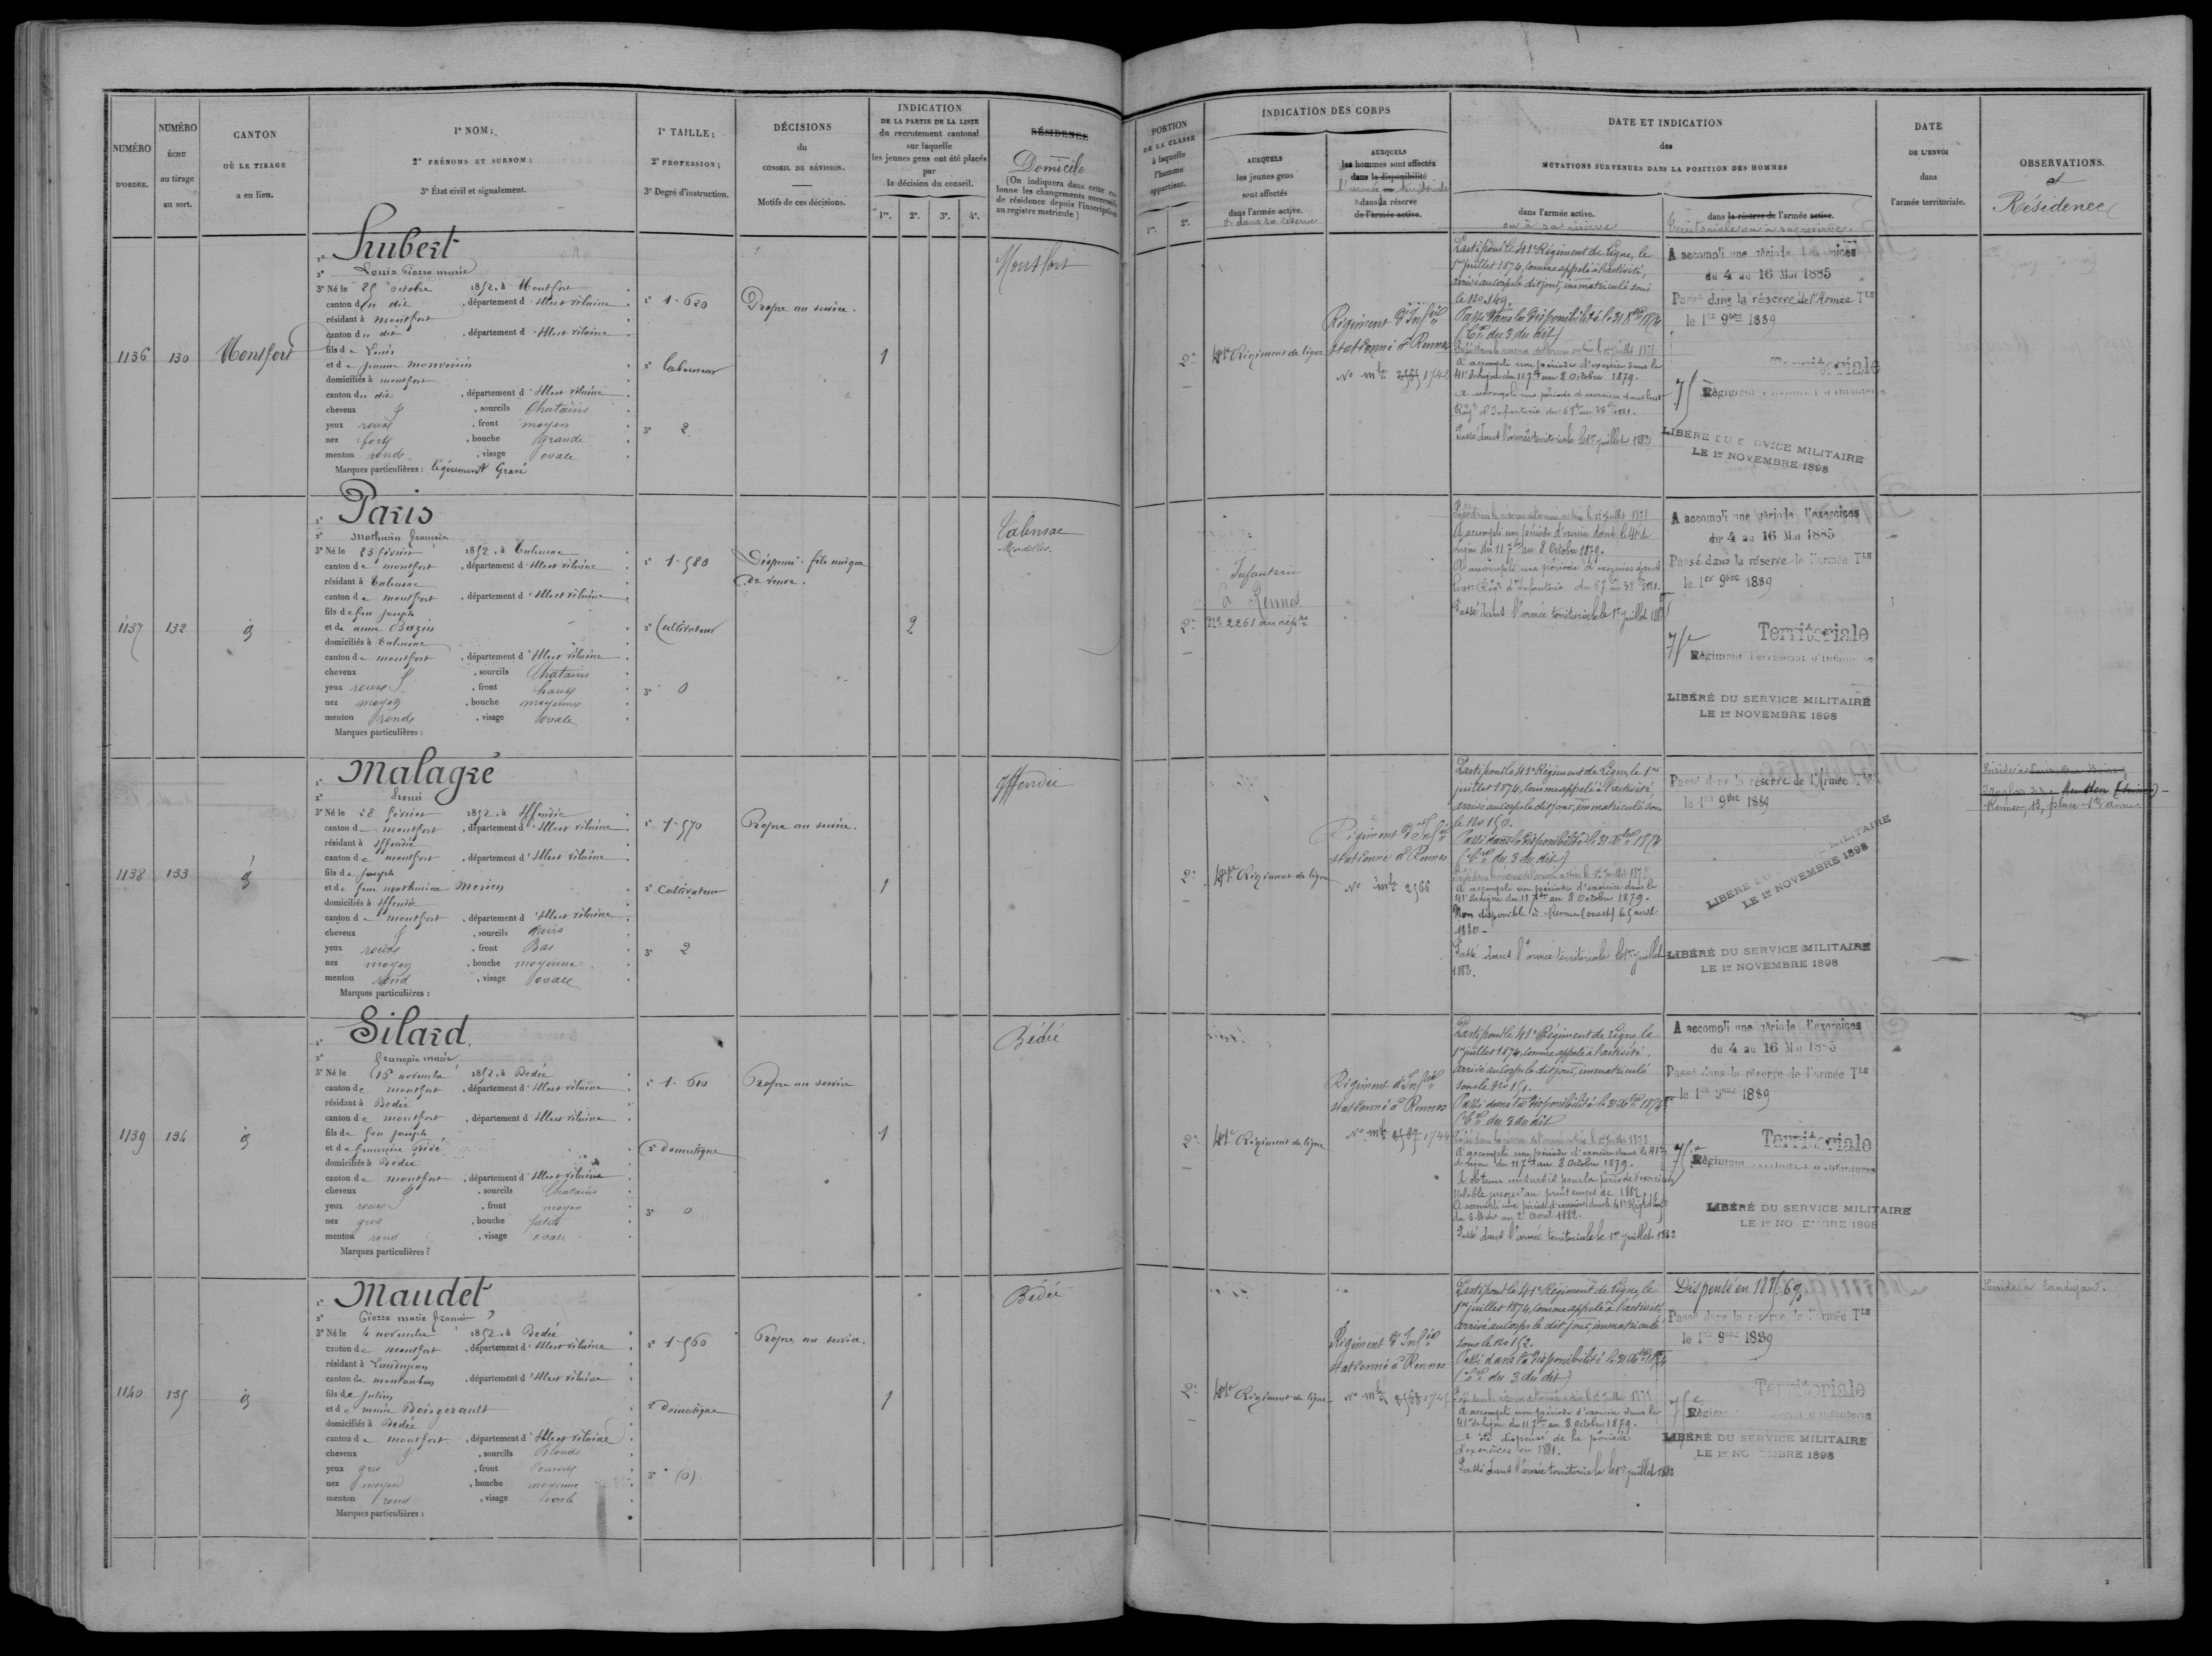 NUMÉRO
D'ORDRE.
NUMÉRO
ÉCHU
au tirage
au sort.
CANTON
OÙ LE TIRAGE
a eu lieu.
1° NOM;
2° PRÉNOMS ET SURNOM;
3° État civil et signalement.
1° TAILLE;
2° PROFESSION;
3° Degré d'instruction.
DÉCISIONS
du
CONSEIL DE RÉVISION.
Motifs de ces décisions.
INDICATION
DE LA PARTIE DE LA LISTE
du recrutement cantonal
sur laquelle
les jeunes gens ont été placés
par
la décision du conseil.
1re. 2e. 3e. 4e.
RÉSIDENCE
Domicile
(On indiquera dans cette colonne
les changements successifs
de résidence depuis l'inscription
au registre matricule)
PORTION
DE LA CLASSE
à laquelle
l'homme
appartient.
1re. 2e.
INDICATION DES CORPS
AUXQUELS
les jeunes gens
sont affectés
dans l'armée active.
& dans sa réserve
AUXQUELS
les hommes sont affectés
dans la disponibilité
l'armée ou territoriale
dans la réserve
de l'armée active.
DATE ET INDICATION
des
MUTATIONS SURVENUES DANS LA POSITION DES HOMMES
dans l'armée active.
ou à sa réserve
dans la réserve de l'armée active.
Territoriale ou à sa réserve.
DATE
DE L'ENVOI
dans
l'armée territoriale.
OBSERVATIONS.
et
Résidence
1136 130 Montfort
1° Hubert
2° Louis Pierre marie
3° Né le 25 octobre 1852, à Montfort
canton du dit, département d'Ille et vilaine
résidant à Montfort
canton du dit, département d'Ille et vilaine
fils de Louis
et de jeanne monvoisin
domiciliés à montfort
canton du dit, département d'Ille et vilaine
cheveux, sourcils Chatains
yeux roux, front moyen
nez fort, bouche grande
menton rond, visage ovale
Marques particulières : légèrement Gravé
1° 1.620
2° Laboureur
3° 2
Propre au service.
1
Montfort
2e
41e Régiment de ligne
Régiment d'Infie
stationné à Rennes
No mle 1742
Parti pour le 41e Régiment de Ligne, le
1er juillet 1874, comme appelé à l'activité,
arrivé au corps le dit jour, immatriculé sous
le No 149.
Passé dans la disponibilité le 31 Xbre 1874
(Cre du 3 du dit)
Passé dans la réserve de l'armée active le 1er juillet 1878
A accompli une période d'exercice dans le
41e de ligne du 11 7bre au 8 Octobre 1879.
Passé dans l'armée territoriale le 1er juillet 1882
A accompli une période d'exercices
du 4 au 16 Mai 1885
Passé dans la réserve de l'Armée Tle
le 1er 9bre 1889
75 Territoriale
Régiment Territorial d'Infanterie
LIBÉRÉ DU SERVICE MILITAIRE
LE 1er NOVEMBRE 1898
1137 132 id
1° Paris
2° Mathurin François
3° Né le 23 février 1852, à Talensac
canton de montfort, département d'Ille et vilaine
résidant à Talensac
canton de montfort, département d'Ille et vilaine
fils de feu Joseph
et de anne Bazin
domiciliés à Talensac
canton de montfort, département d'Ille et vilaine
cheveux, sourcils Chatains
yeux roux, front haut
nez moyen, bouche moyenne
menton rond, visage ovale
Marques particulières :
1° 1.580
2° Cultivateur
3° 0
Dispensé : fils unique
de veuve.
2
Talensac
2e
Infanterie
à Rennes
No 2261 au répre
Passé dans la réserve de l'armée active le 1er juillet 1878
A accompli une période d'exercice dans le 41e de
Ligne du 11 7bre au 8 Octobre 1879.
Passé dans l'armée territoriale le 1er juillet 1882
A accompli une période d'exercices
du 4 au 16 Mai 1885
Passé dans la réserve de l'armée Tle
le 1er 9bre 1889
75e Territoriale
Régiment Territorial d'Infanterie
LIBÉRÉ DU SERVICE MILITAIRE
LE 1er NOVEMBRE 1898
1138 133 id
1° Malagré
2°
3° Né le 28 février 1852, à Iffendic
canton de montfort, département d'Ille et vilaine
résidant à Iffendic
canton de montfort, département d'Ille et vilaine
fils de Joseph
et de feue mathurine Morien
domiciliés à Iffendic
canton de montfort, département d'Ille et vilaine
cheveux, sourcils noirs
yeux roux, front Bas
nez moyen, bouche moyenne
menton rond, visage ovale
Marques particulières :
1° 1.570
2° Cultivateur
3° 2
Propre au service.
1
Iffendic
2e
41e Régiment de ligne
Régiment d'Infie
stationné à Rennes
No mle 2566
Parti pour le 41e Régiment de Ligne, le 1er
juillet 1874, comme appelé à l'activité,
arrivé au corps le dit jour, immatriculé sous
le No 150.
Passé dans la disponibilité le 31 Xbre 1874
(Cre du 3 du dit)
Passé dans la réserve de l'armée active le 1er juillet 1878
A accompli une période d'exercice dans le
41e de Ligne du 11 7bre au 8 Octobre 1879.
Non disponible à Rennes (ouest) le 5 avril
1880
Passé dans l'armée territoriale le 1er juillet
1882.
Passé dans la réserve de l'Armée Tle
le 1er 9bre 1889
LIBÉRÉ DU MILITAIRE
LE 1er NOVEMBRE 1898
LIBÉRÉ DU SERVICE MILITAIRE
LE 1er NOVEMBRE 1898
Rennes, 13, place
1139 134 id
1° Silard
2° François marie
3° Né le 15 novembre 1852, à Bedée
canton de montfort, département d'Ille et vilaine
résidant à Bedée
canton de montfort, département d'Ille et vilaine
fils de feu Joseph
et de françoise
domiciliés à Bedée
canton de montfort, département d'Ille et vilaine
cheveux, sourcils Chatains
yeux roux, front moyen
nez gros, bouche petite
menton rond, visage ovale
Marques particulières :
1° 1.610
2° Domestique
3° 0
Propre au service
1
Bédée
2e
41e Régiment de ligne
Régiment d'Infie
stationné à Rennes
No mle 1744
Parti pour le 41e Régiment de Ligne le
1er juillet 1874, comme appelé à l'activité,
arrivé au corps le dit jour, immatriculé
sous le No 151.
Passé dans la disponibilité le 31 Xbre 1874
(Cre du 3 du dit)
Passé dans la réserve de l'armée active le 1er juillet 1878
A accompli une période d'exercice dans le 41e
de ligne du 11 7bre au 8 Octobre 1879.
A obtenu un sursis pour la période d'exercices
valable jusqu'au printemps de 1882
A accompli une période d'exercices dans le 41e Régt d'Inf
du 6 Mars au 2 avril 1882.
Passé dans l'armée territoriale le 1er juillet 1882
A accompli une période d'exercices
du 4 au 16 Mai 1885
Passé dans la réserve de l'armée Tle
le 1er 9bre 1889
75e Territoriale
Régiment Territorial d'Infanterie
LIBÉRÉ DU SERVICE MILITAIRE
LE 1er NOVEMBRE 1898
1140 135 id
1° Maudet
2° Pierre marie François
3° Né le 4 novembre 1852, à Bedée
canton de montfort, département d'Ille et vilaine
résidant à Landujan
canton de montauban, département d'Ille et vilaine
fils de Julien
et de marie Boisgerault
domiciliés à Bedée
canton de montfort, département d'Ille et vilaine
cheveux, sourcils Blonds
yeux gris, front couvert
nez moyen, bouche moyenne
menton rond, visage ovale
Marques particulières :
1° 1.560
2° Domestique
3° (0)
Propre au service.
1
Bédée
2e
41e Régiment de ligne
Régiment d'Infie
stationné à Rennes
No mle 2568 1745
Parti pour le 41e Régiment de Ligne, le
1er juillet 1874, comme appelé à l'activité,
arrivé au corps le dit jour, immatriculé
sous le No 152.
Passé dans la disponibilité le 31 Xbre 1874
(Cre du 3 du dit)
Passé dans la réserve de l'armée active le 1er juillet 1878
A accompli une période d'exercice dans le
41e de Ligne du 11 7bre au 8 Octobre 1879.
A été dispensé de la période
d'exercices en 1881.
Passé dans l'armée territoriale le 1er juillet 1882
Dispensé en 1885
Passé dans la réserve de l'Armée Tle
le 1er 9bre 1889
75e Territoriale
Régiment Territorial d'Infanterie
LIBÉRÉ DU SERVICE MILITAIRE
LE 1er NOVEMBRE 1898
Réside à Landujan.